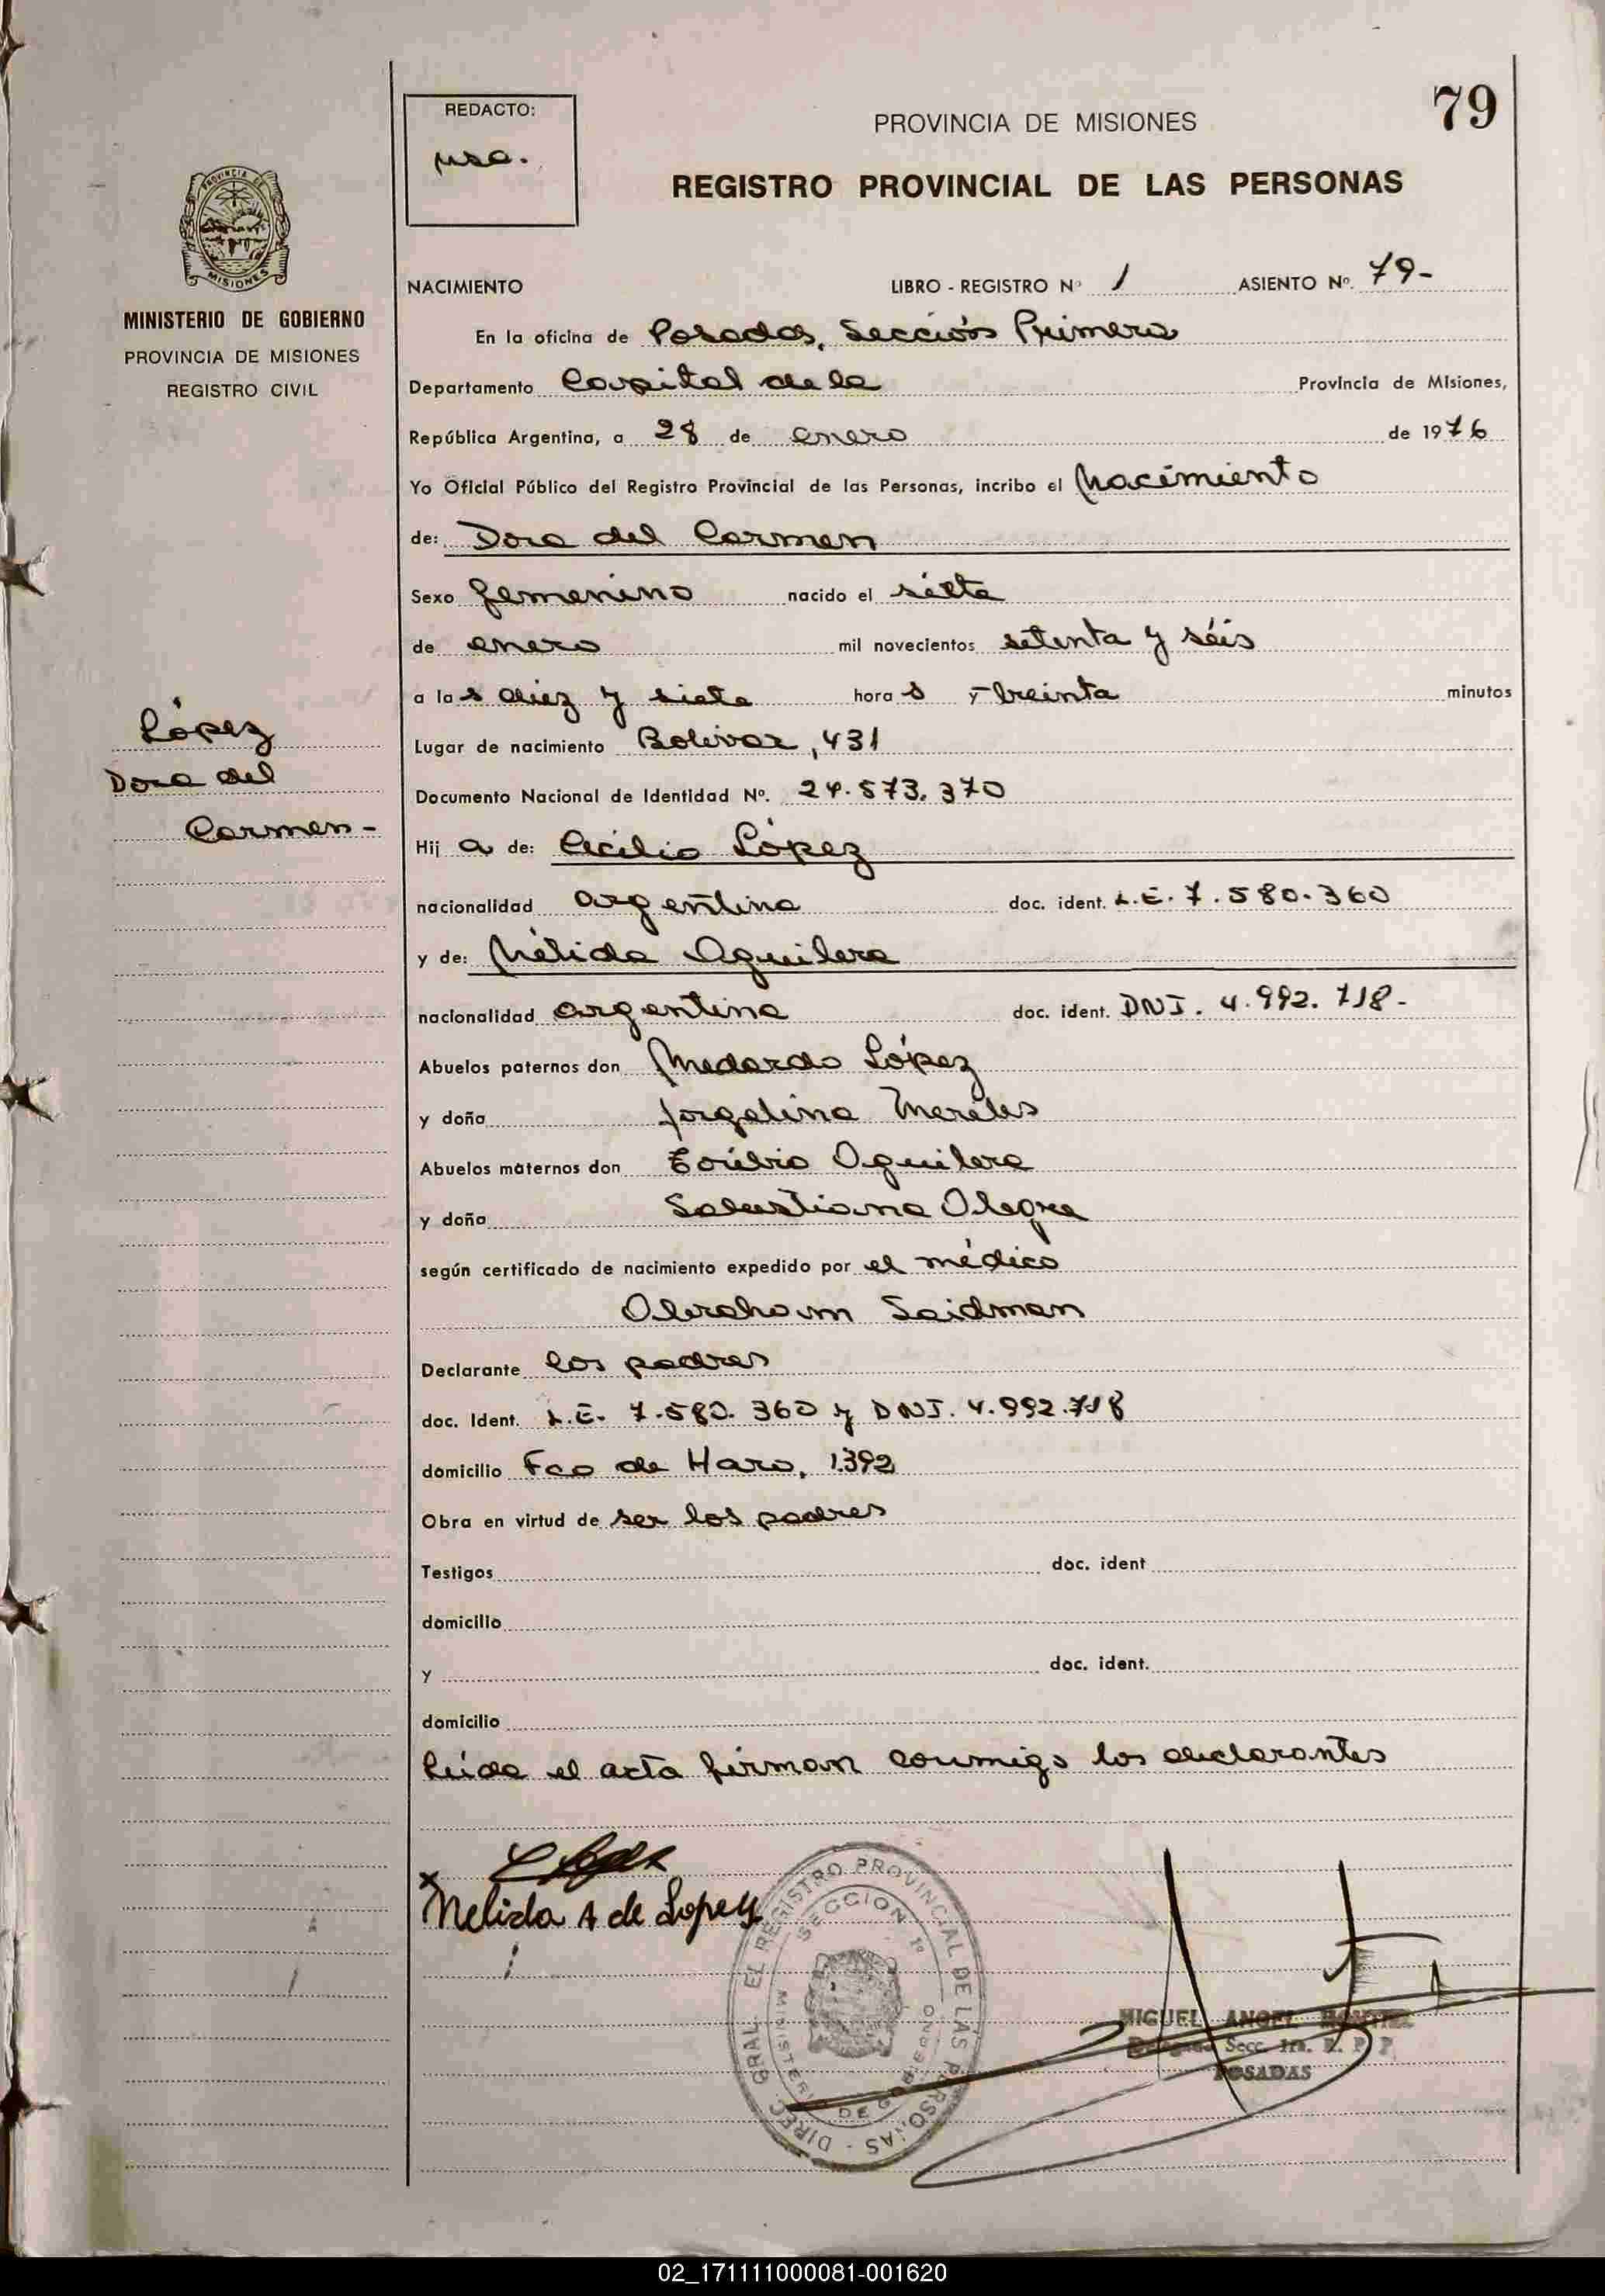 79
REDACTO:
PROVINCIA DE MISIONES
REGISTRO PROVINCIAL DE LAS PERSONAS
PROVINCIA DE
MISIONES
MINISTERIO DE GOBIERNO
PROVINCIA DE MISIONES
REGISTRO CIVIL
NACIMIENTO LIBRO - REGISTRO Nº 1 ASIENTO Nº. 79-
En la oficina de Posadas, Sección Primera
Departamento Capital de la Provincia de Misiones,
República Argentina, a 28 de enero de 1976
Yo Oficial Público del Registro Provincial de las Personas, incribo el Nacimiento
de: Dora del Carmen
Sexo femenino nacido el siete
de enero mil novecientos setenta y séis
a las diez y siete horas y treinta minutos
López
Dora del
Carmen-
Lugar de nacimiento Bolívar, 431
Documento Nacional de Identidad Nº. 24.573.370
Hija de: Cecilio López
nacionalidad argentina doc. ident. L.E. 7.580.360
y de: Nélida Aguilera
nacionalidad argentina doc. ident. DNI. 4.992.718-
Abuelos paternos don Medardo López
y doña Jorgelina Mereles
Abuelos maternos don Toribio Aguilera
y doña Sebastiana Alegre
según certificado de nacimiento expedido por el médico
Abraham Saidman
Declarante los padres
doc. Ident. L.E. 7.580.360 y DNI. 4.992.718
domicilio Fco de Haro, 1392
Obra en virtud de ser los padres
Testigos doc. ident
domicilio
y doc. ident.
domicilio
Leída el acta firman conmigo los declarantes
x
Nelida A de Lopez
DIREC. GRAL. EL REGISTRO PROVINCIAL DE LAS PERSONAS
SECCION 1ª
MINISTERIO DE GOBIERNO
MIGUEL ANGEL
Secc. 1ra. R. P. P.
POSADAS
02_171111000081-001620